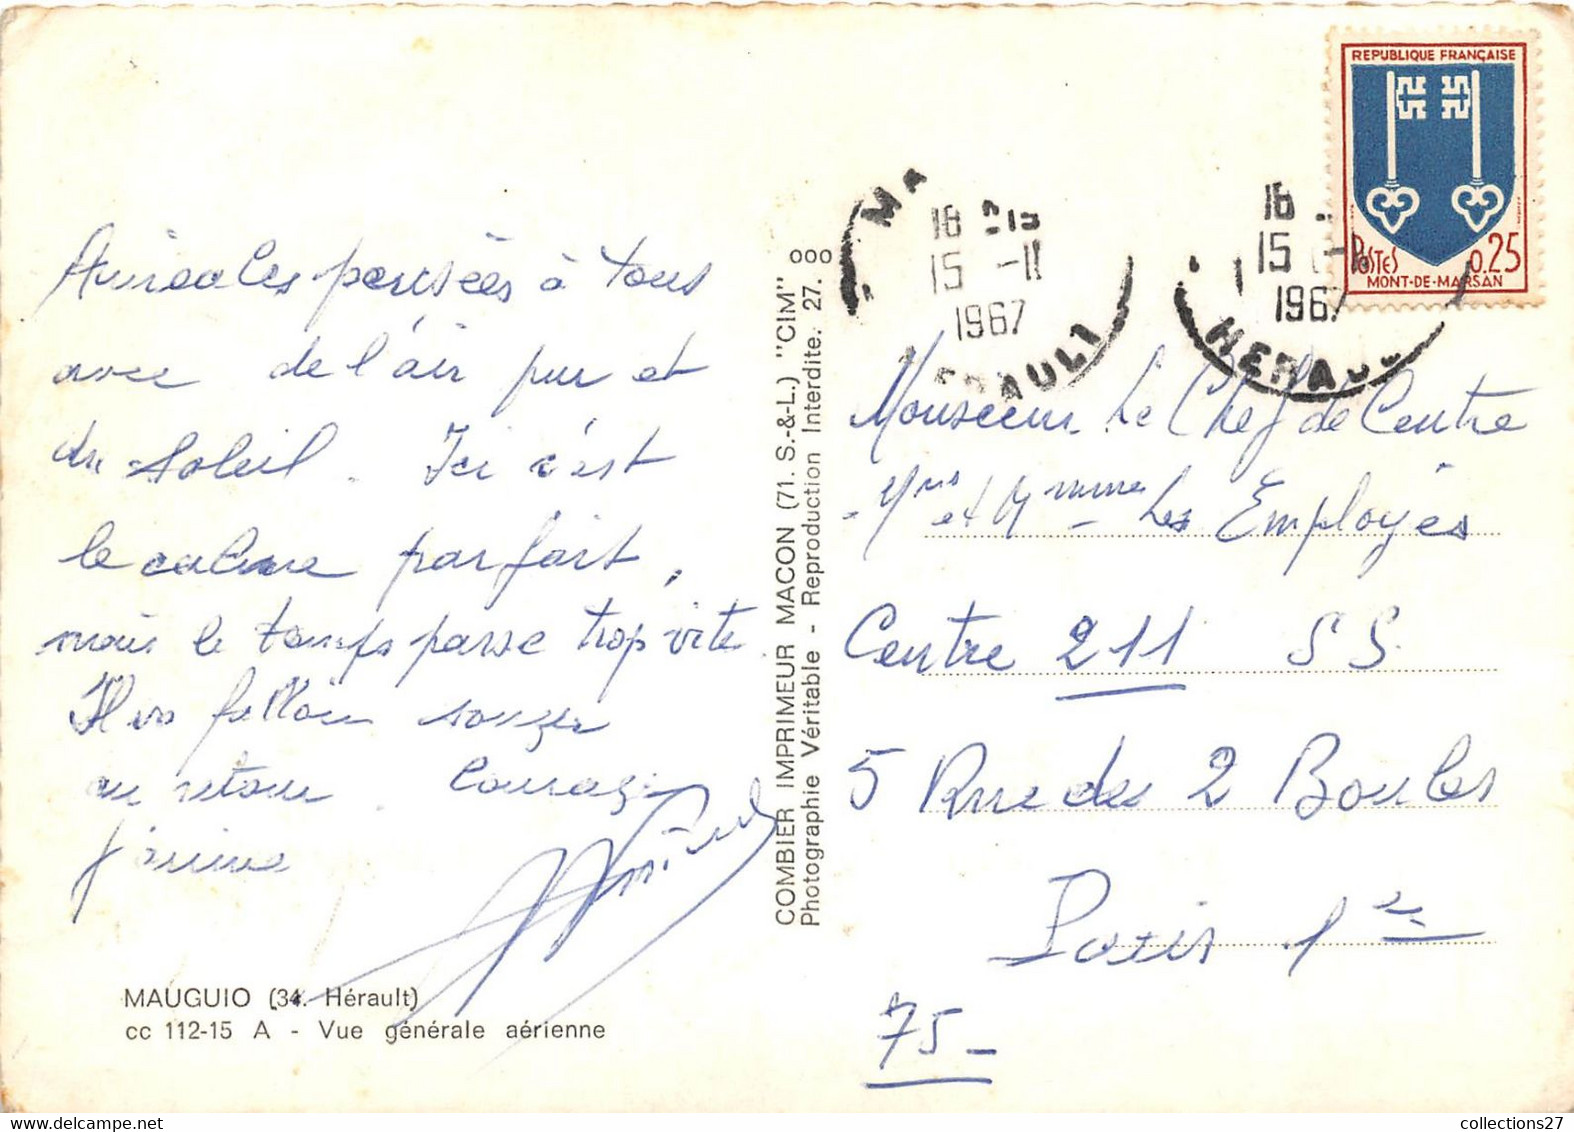 REPUBLIQUE FRANÇAISE
POSTES 0.25
MONT-DE-MARSAN
MA
18 H 15
15 -11
1967
HERAULT
18
15 -11
1967
HERAUL
Amicales pensées à tous
avec de l'air pur et
du soleil. Ici c'est
le calme parfait,
mais le temps passe trop vite.
Il va falloir songer
au retour. Courage
J'arrive
MAUGUIO (34. Hérault)
cc 112-15 A - Vue générale aérienne
COMBIER IMPRIMEUR MACON (71. S.-&-L.) "CIM"
Photographie Véritable - Reproduction Interdite. 27.
ooo
Monsieur Le Chef de Centre
et Les Employés
Centre 211 SS
5 Rue des 2 Boules
Paris 1er
75
collections27